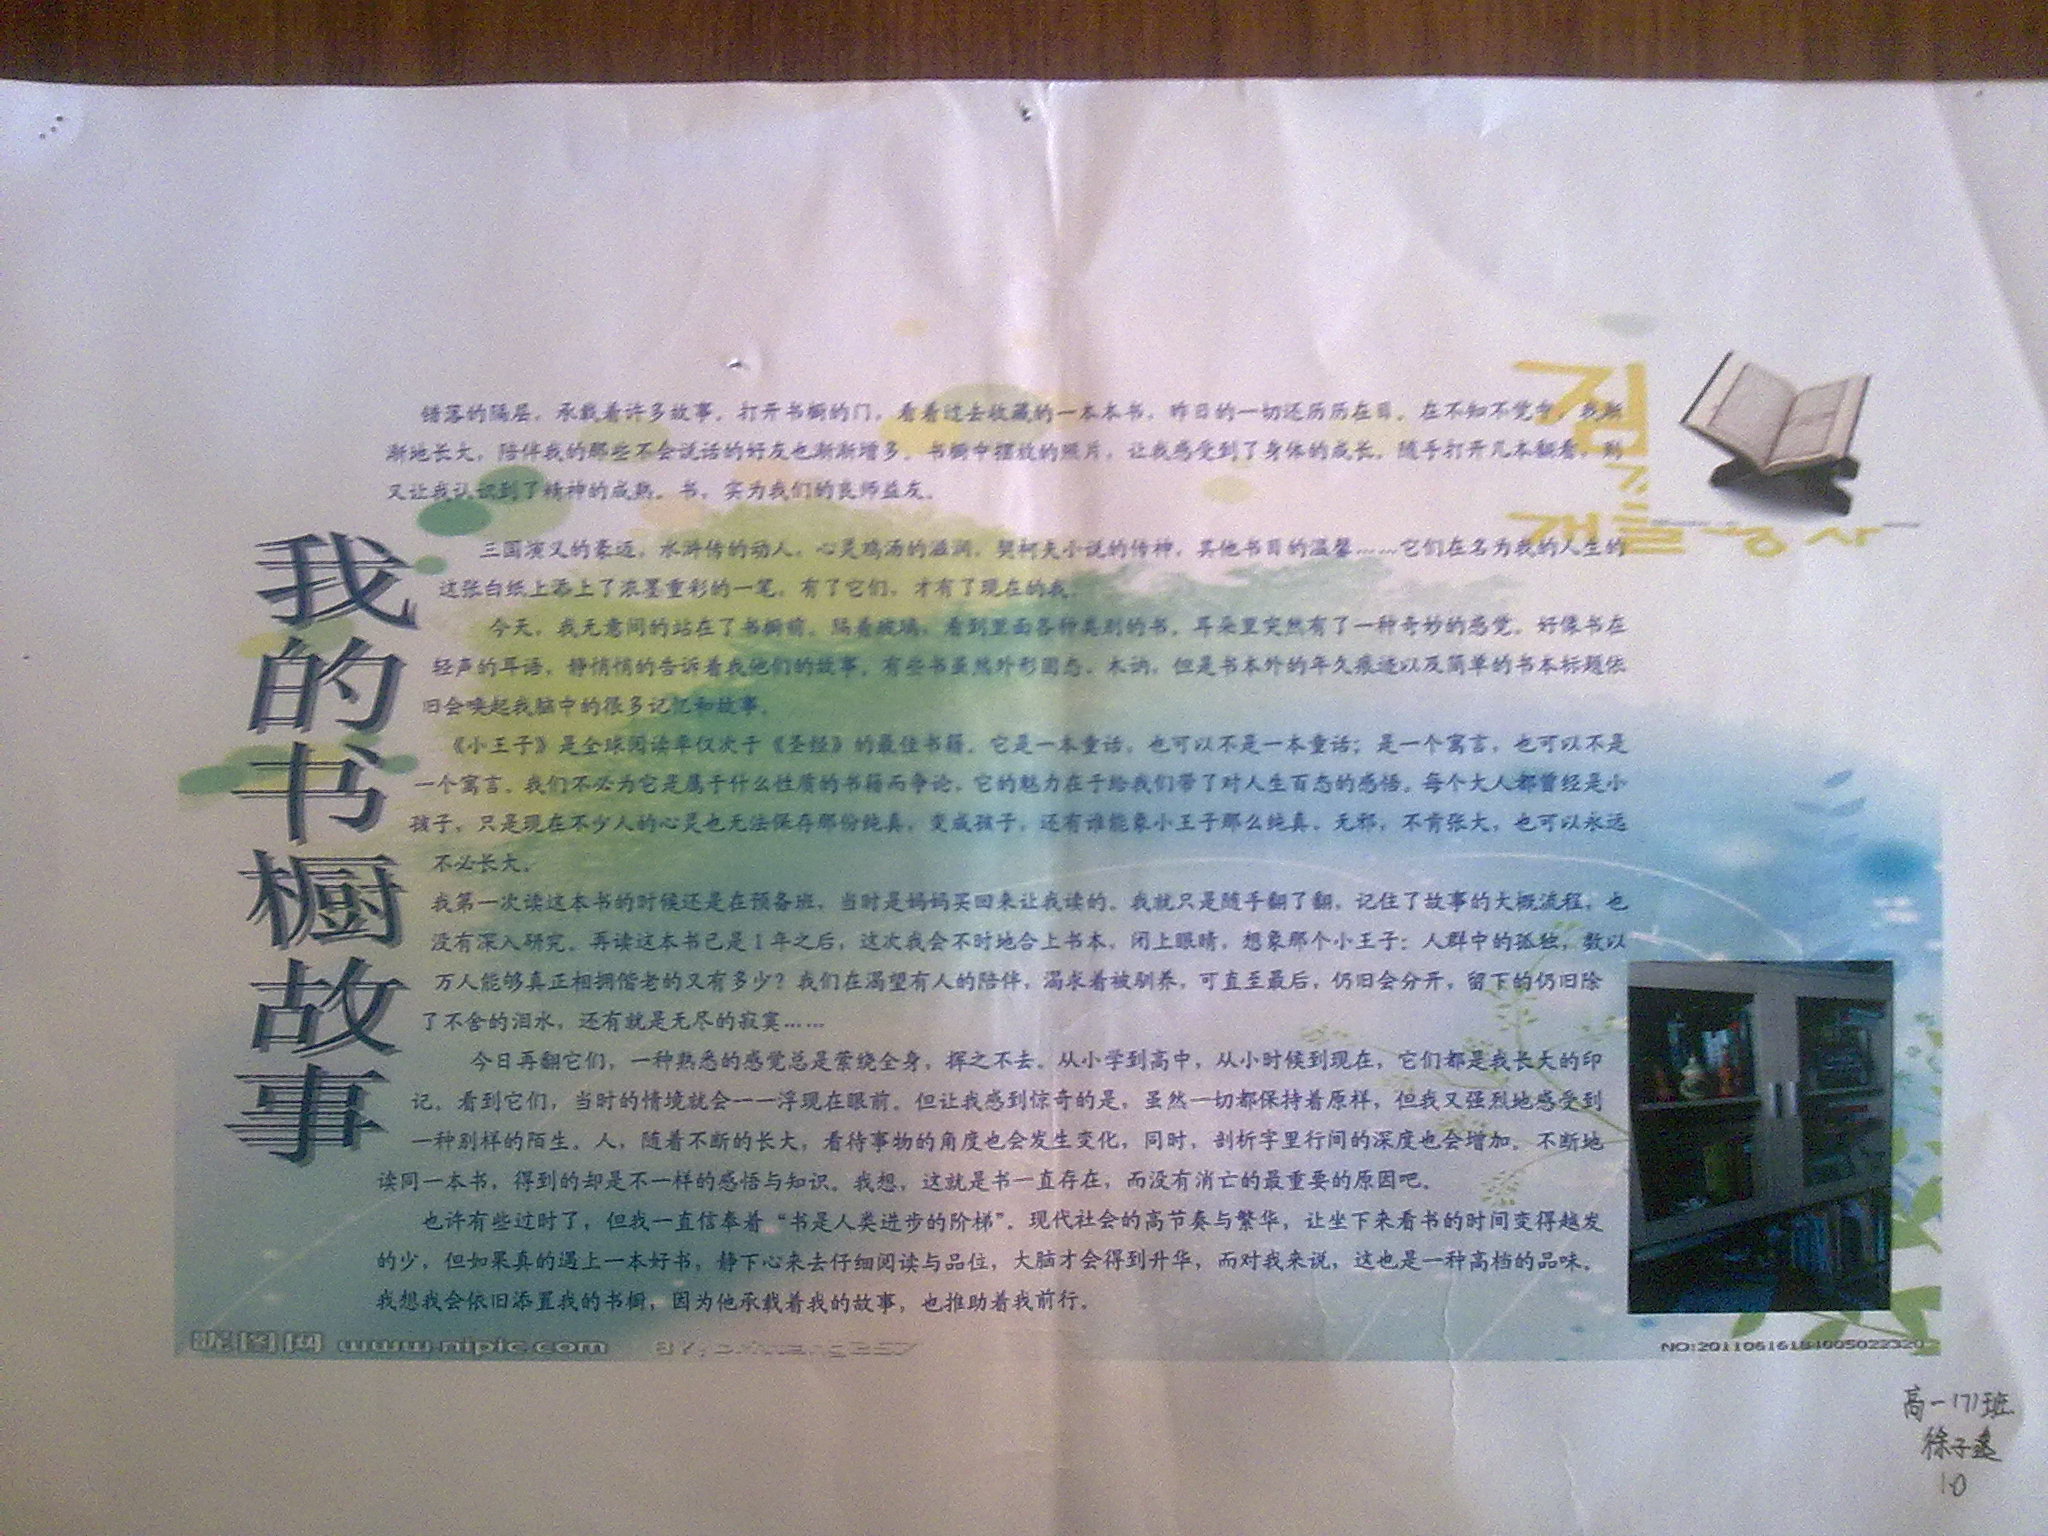 我的书橱故事
错落的隔层，承载着许多故事。打开书橱的门，看着过去收藏的一本本书，昨日的一切还历历在目。在不知不觉中，我渐
渐地长大，陪伴我的那些不会说话的好友也渐渐增多。书橱中摆放的照片，让我感受到了身体的成长，随手打开几本翻看，则
又让我认识到了精神的成熟。书，实为我们的良师益友。
三国演义的豪迈，水浒传的动人，心灵鸡汤的滋润，契柯夫小说的传神，其他书目的温馨……它们在名为我的人生的
这张白纸上添上了浓墨重彩的一笔。有了它们，才有了现在的我。
今天，我无意间的站在了书橱前。隔着玻璃，看到里面各种类别的书。耳朵里突然有了一种奇妙的感觉。好像书在
轻声的耳语，静悄悄的告诉着我他们的故事。有些书虽然外形固态、木讷，但是书本外的年久痕迹以及简单的书本标题依
旧会唤起我脑中的很多记忆和故事。
《小王子》是全球阅读率仅次于《圣经》的最佳书籍。它是一本童话，也可以不是一本童话；是一个寓言，也可以不是
一个寓言。我们不必为它是属于什么性质的书籍而争论，它的魅力在于给我们带了对人生百态的感悟。每个大人都曾经是小
孩子，只是现在不少人的心灵也无法保存那份纯真。变成孩子，还有谁能象小王子那么纯真、无邪，不肯张大，也可以永远
不必长大。
我第一次读这本书的时候还是在预备班，当时是妈妈买回来让我读的。我就只是随手翻了翻，记住了故事的大概流程，也
没有深入研究。再读这本书已是1年之后，这次我会不时地合上书本，闭上眼睛，想象那个小王子：人群中的孤独，数以
万人能够真正相拥偕老的又有多少？我们在渴望有人的陪伴，渴求着被驯养，可直至最后，仍旧会分开，留下的仍旧除
了不舍的泪水，还有就是无尽的寂寞……
今日再翻它们，一种熟悉的感觉总是萦绕全身，挥之不去。从小学到高中，从小时候到现在，它们都是我长大的印
记。看到它们，当时的情境就会一一浮现在眼前。但让我感到惊奇的是，虽然一切都保持着原样，但我又强烈地感受到
一种别样的陌生。人，随着不断的长大，看待事物的角度也会发生变化，同时，剖析字里行间的深度也会增加。不断地
读同一本书，得到的却是不一样的感悟与知识。我想，这就是书一直存在，而没有消亡的最重要的原因吧。
也许有些过时了，但我一直信奉着“书是人类进步的阶梯”。现代社会的高节奏与繁华，让坐下来看书的时间变得越发
的少，但如果真的遇上一本好书，静下心来去仔细阅读与品位，大脑才会得到升华，而对我来说，这也是一种高档的品味。
我想我会依旧添置我的书橱，因为他承载着我的故事，也推助着我前行。
昵图网 www.nipic.com BY:
NO:20110616184005022320
高一(7)班
徐子
10